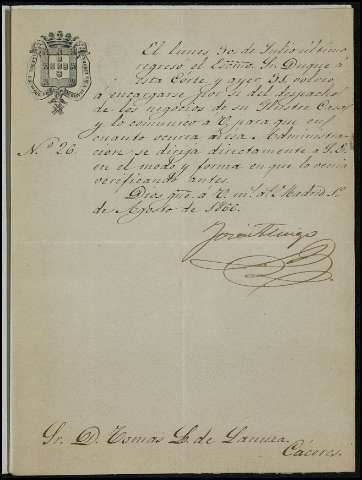 El lunes 30 de Julio último
regresó el Excmo. Sr. Duque á
esta Corte y ayer, 31, volvió
á encargarse por sí del despacho
de los negocios de su Ilustre Casa
y lo comunico á V. para que en
cuanto ocurra á esa Administra-
cion se dirija directamente á S. E.
en el modo y forma en que lo venia
verificando antes.
Nº 26.
Dios gue. á V. ms. as. Madrid 1º
de Agosto de 1866.
Sr. D. Tomas M. de Lanuza.
Cáceres.